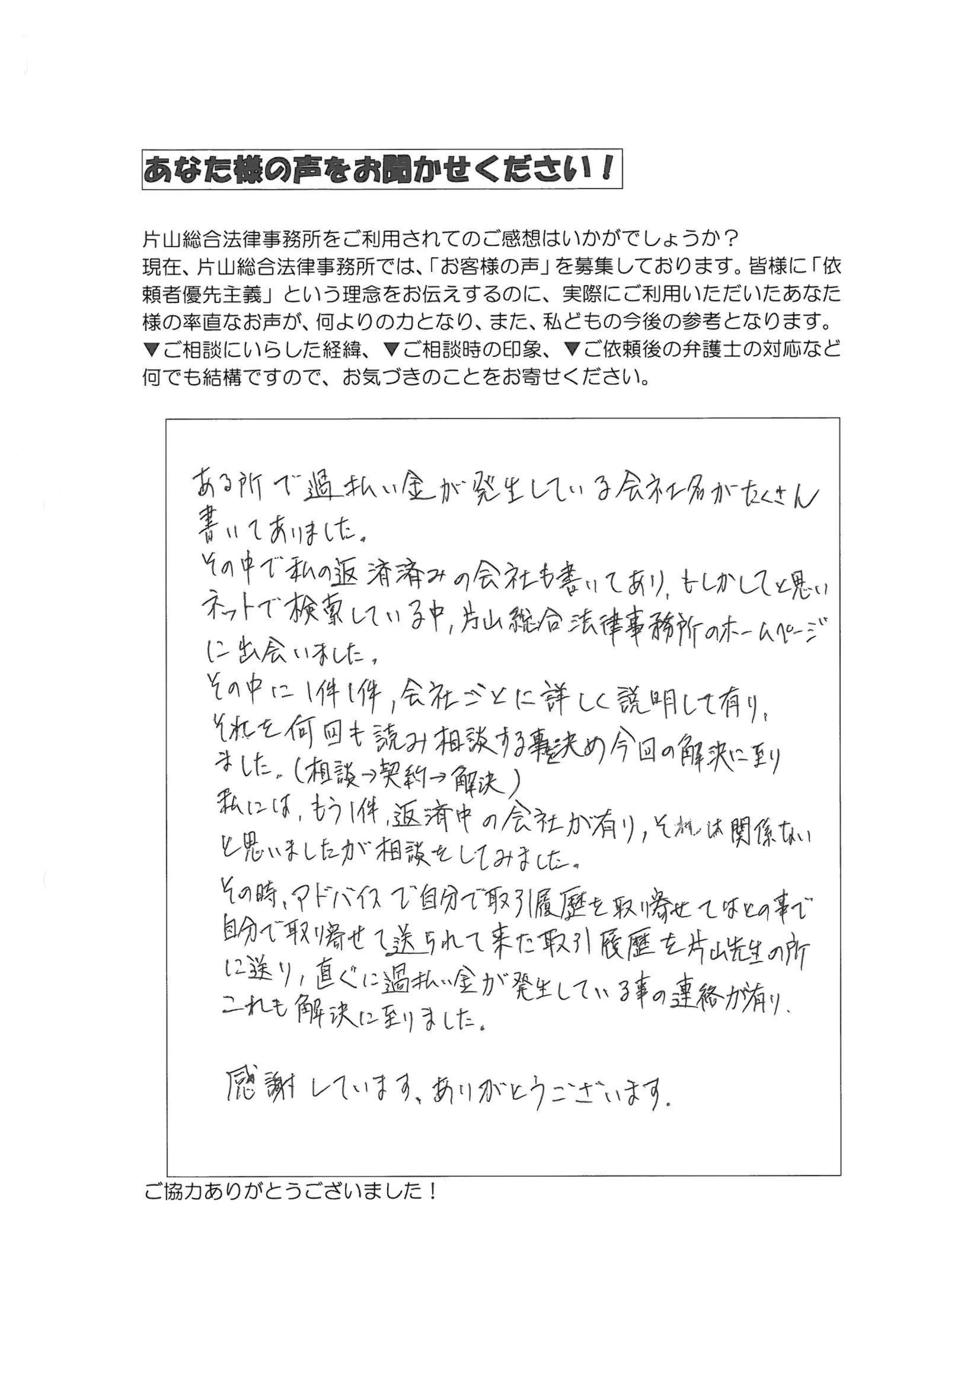 あなた様の声をお聞かせください！
片山総合法律事務所をご利用されてのご感想はいかがでしょうか？
現在、片山総合法律事務所では、「お客様の声」を募集しております。皆様に「依
頼者優先主義」という理念をお伝えするのに、実際にご利用いただいたあなた
様の率直なお声が、何よりの力となり、また、私どもの今後の参考となります。
▼ご相談にいらした経緯、▼ご相談時の印象、▼ご依頼後の弁護士の対応など
何でも結構ですので、お気づきのことをお寄せください。
ある所で過払い金が発生している会社名がたくさん
書いてありました。
その中で私の返済済みの会社も書いてあり、もしかしてと思い
ネットで検索している中、片山総合法律事務所のホームページ
に出会いました。
その中に1件1件、会社ごとに詳しく説明して有り、
それを何回も読み相談する事を決め今回の解決に至り
ました。(相談→契約→解決)
私には、もう1件、返済中の会社が有り、それは関係ない
と思いましたが相談をしてみました。
その時、アドバイスで自分で取引履歴を取り寄せてはとの事で
自分で取り寄せて送られて来た取引履歴を片山先生の所
に送り、直ぐに過払い金が発生している事の連絡が有り、
これも解決に至りました。
感謝しています、ありがとうございます。
ご協力ありがとうございました！